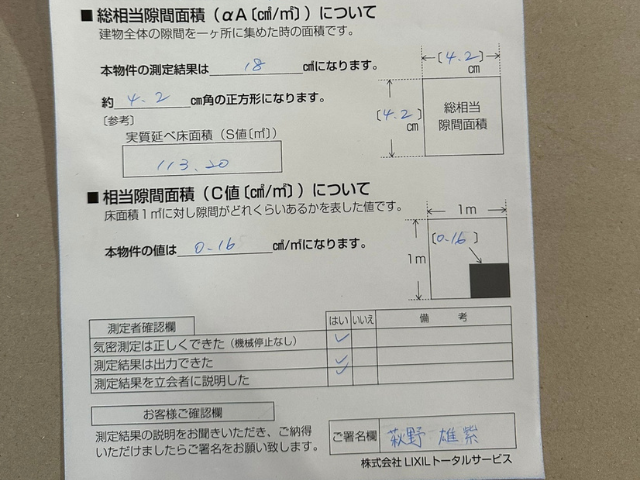 ■ 総相当隙間面積（αA〔c㎡/㎡〕）について
建物全体の隙間を一ヶ所に集めた時の面積です。
本物件の測定結果は 18 c㎡になります。
約 4.2 cm角の正方形になります。
〔参考〕
実質延べ床面積（S値〔㎡〕）
113.20
〔4.2〕
cm
〔4.2〕
cm
総相当
隙間面積
■ 相当隙間面積（C値〔c㎡/㎡〕）について
床面積1㎡に対し隙間がどれくらいあるかを表した値です。
本物件の値は 0.16 c㎡/㎡になります。
1m
1m
〔0.16〕
測定者確認欄 はい いいえ 備 考
気密測定は正しくできた（機械停止なし） ✓
測定結果は出力できた ✓
測定結果を立会者に説明した ✓
お客様ご確認欄
測定結果の説明をお聞きいただき、ご納得
いただけましたらご署名をお願い致します。
ご署名欄 萩野 雄紫
株式会社 LIXILトータルサービス